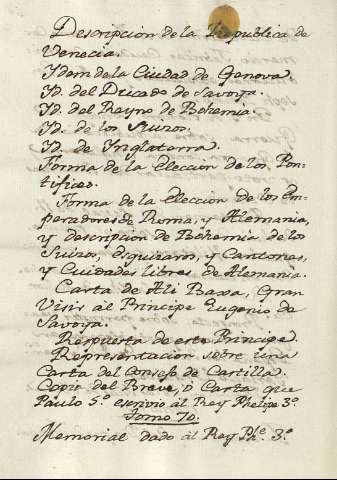 Descripcion de la Republica de
Venecia.
Ydem de la Ciudad de Genova
Yd. del Ducado de Savoya.
Yd. del Reyno de Bohemia.
Yd. de los Suizos.
Yd. de Ynglaterra.
Forma de la Eleccion de los Pon=
tifices.
Forma de la Eleccion de los Em-
peradores de Roma, y Alemania,
y descripcion de Bohemia de los
Suizos, Esquizaros, y Cantones,
y Cuidades libres de Alemania.
Carta de Ali Baxa, Gran
Visir al Principe Eugenio de
Savoya.
Respuesta de este Principe.
Representacion sobre una
Carta del Consejo de Castilla.
Copia del Breve, ò Carta que
Paulo 5º escrivió al Rey Phelipe 3º
Tomo 70.
Memorial dado al Rey Phe. 3º